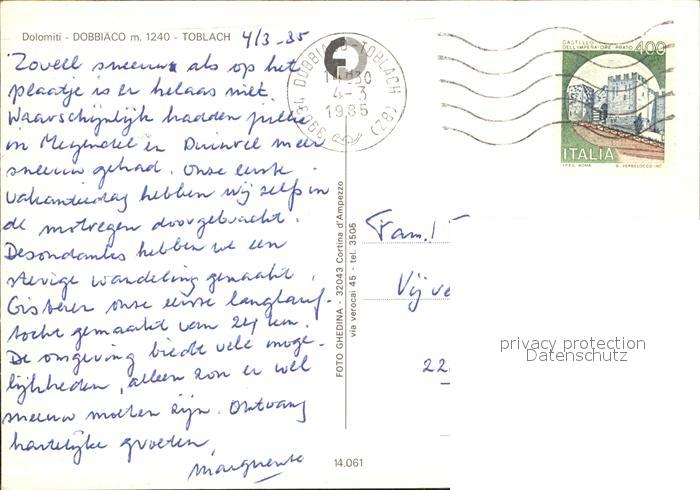 Dolomiti - DOBBIACO m. 1240 - TOBLACH
4/3-85
Zoveel sneeuw als op het
plaatje is er helaas niet.
Waarschijnlijk hadden jullie
in Meyendel en Duinrel meer
sneeuw gehad. Onze eerste
vakantiedag hebben wij zelfs in
de motregen doorgebracht.
Desondanks hebben we een
stevige wandeling gemaakt.
Gisteren onze eerste langlauf-
tocht gemaakt van 24 km.
De omgeving biedt vele moge-
lijkheden, alleen zou er wel
sneeuw moeten zijn. Ontvang
hartelijke groeten,
Marguerite
FOTO GHEDINA - 32043 Cortina d'Ampezzo
via verocai 45 - tel. 3505
14.061
39034 DOBBIACO-TOBLACH (BZ)
14.30
4-3
1985
CASTELLO
DELL'IMPERATORE-PRATO 400
ITALIA
I.P.Z.S. ROMA
Fam.
Vijve
22
privacy protection
Datenschutz